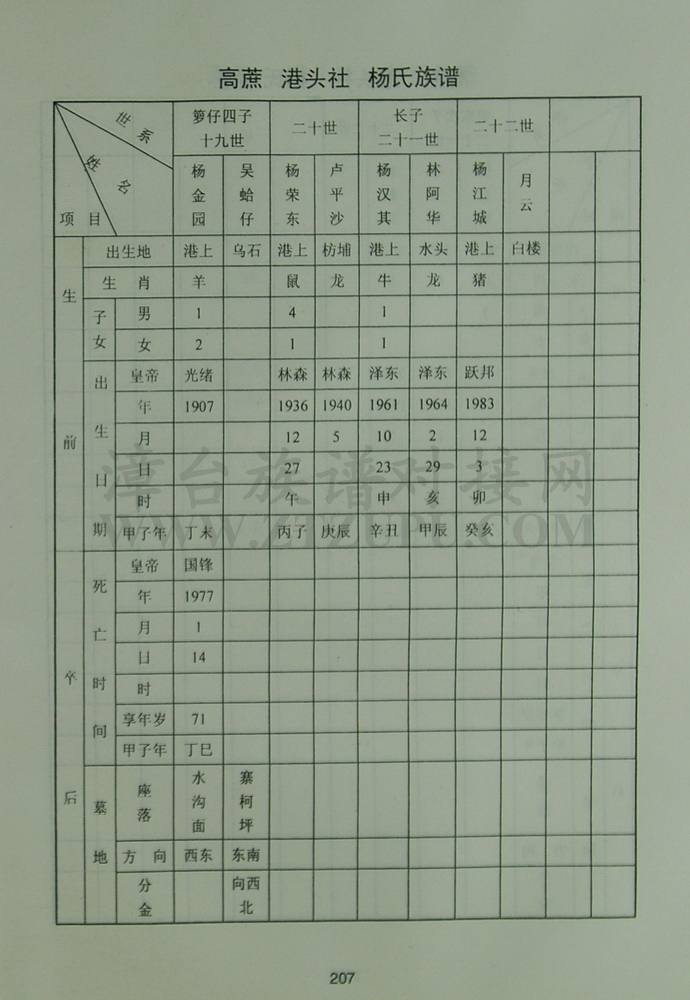 高蔗 港头社 杨氏族谱
世系 姓名 项目 箩仔四子 十九世 二十世 长子 二十一世 二十二世
杨金园 吴蛤仔 杨荣东 卢平沙 杨汉其 林阿华 杨江城 月云
生前
出生地 港上 乌石 港上 枋埔 港上 水头 港上 白楼
生肖 羊 鼠 龙 牛 龙 猪
子女 男 1 4 1
女 2 1 1
出生日期 皇帝 光绪 林森 林森 泽东 泽东 跃邦
年 1907 1936 1940 1961 1964 1983
月 12 5 10 2 12
日 27 23 29 3
时 午 申 亥 卯
甲子年 丁未 丙子 庚辰 辛丑 甲辰 癸亥
卒后
死亡时间 皇帝 国锋
年 1977
月 1
日 14
时
享年岁 71
甲子年 丁巳
墓地 座落 水沟面 寨柯坪
方向 西东 东南
分金 向西北
漳台族谱对接网
WWW.ZTZUPU.COM
207